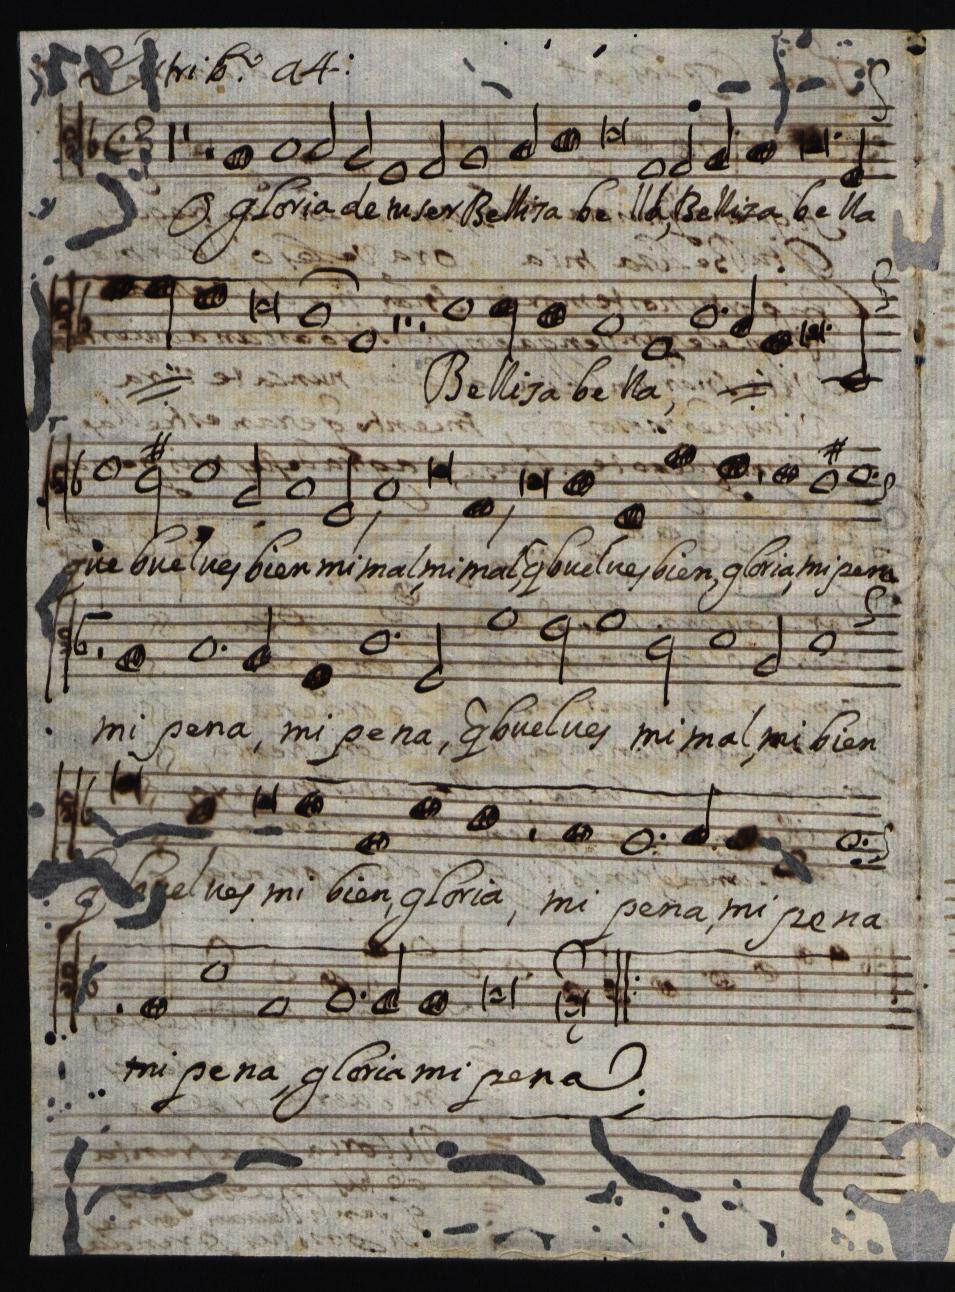 Estribº. a4:
O gloria de m ser Belliza be lla, Belliza be lla
Belliza be lla,
que buelves bien mi mal, mi mal, q buelves bien, gloria, mi pena
mi pena, mi pena, q buelves mi mal, mi bien
q buelves mi bien, gloria, mi pena, mi pena
mi pena, gloria mi pena.